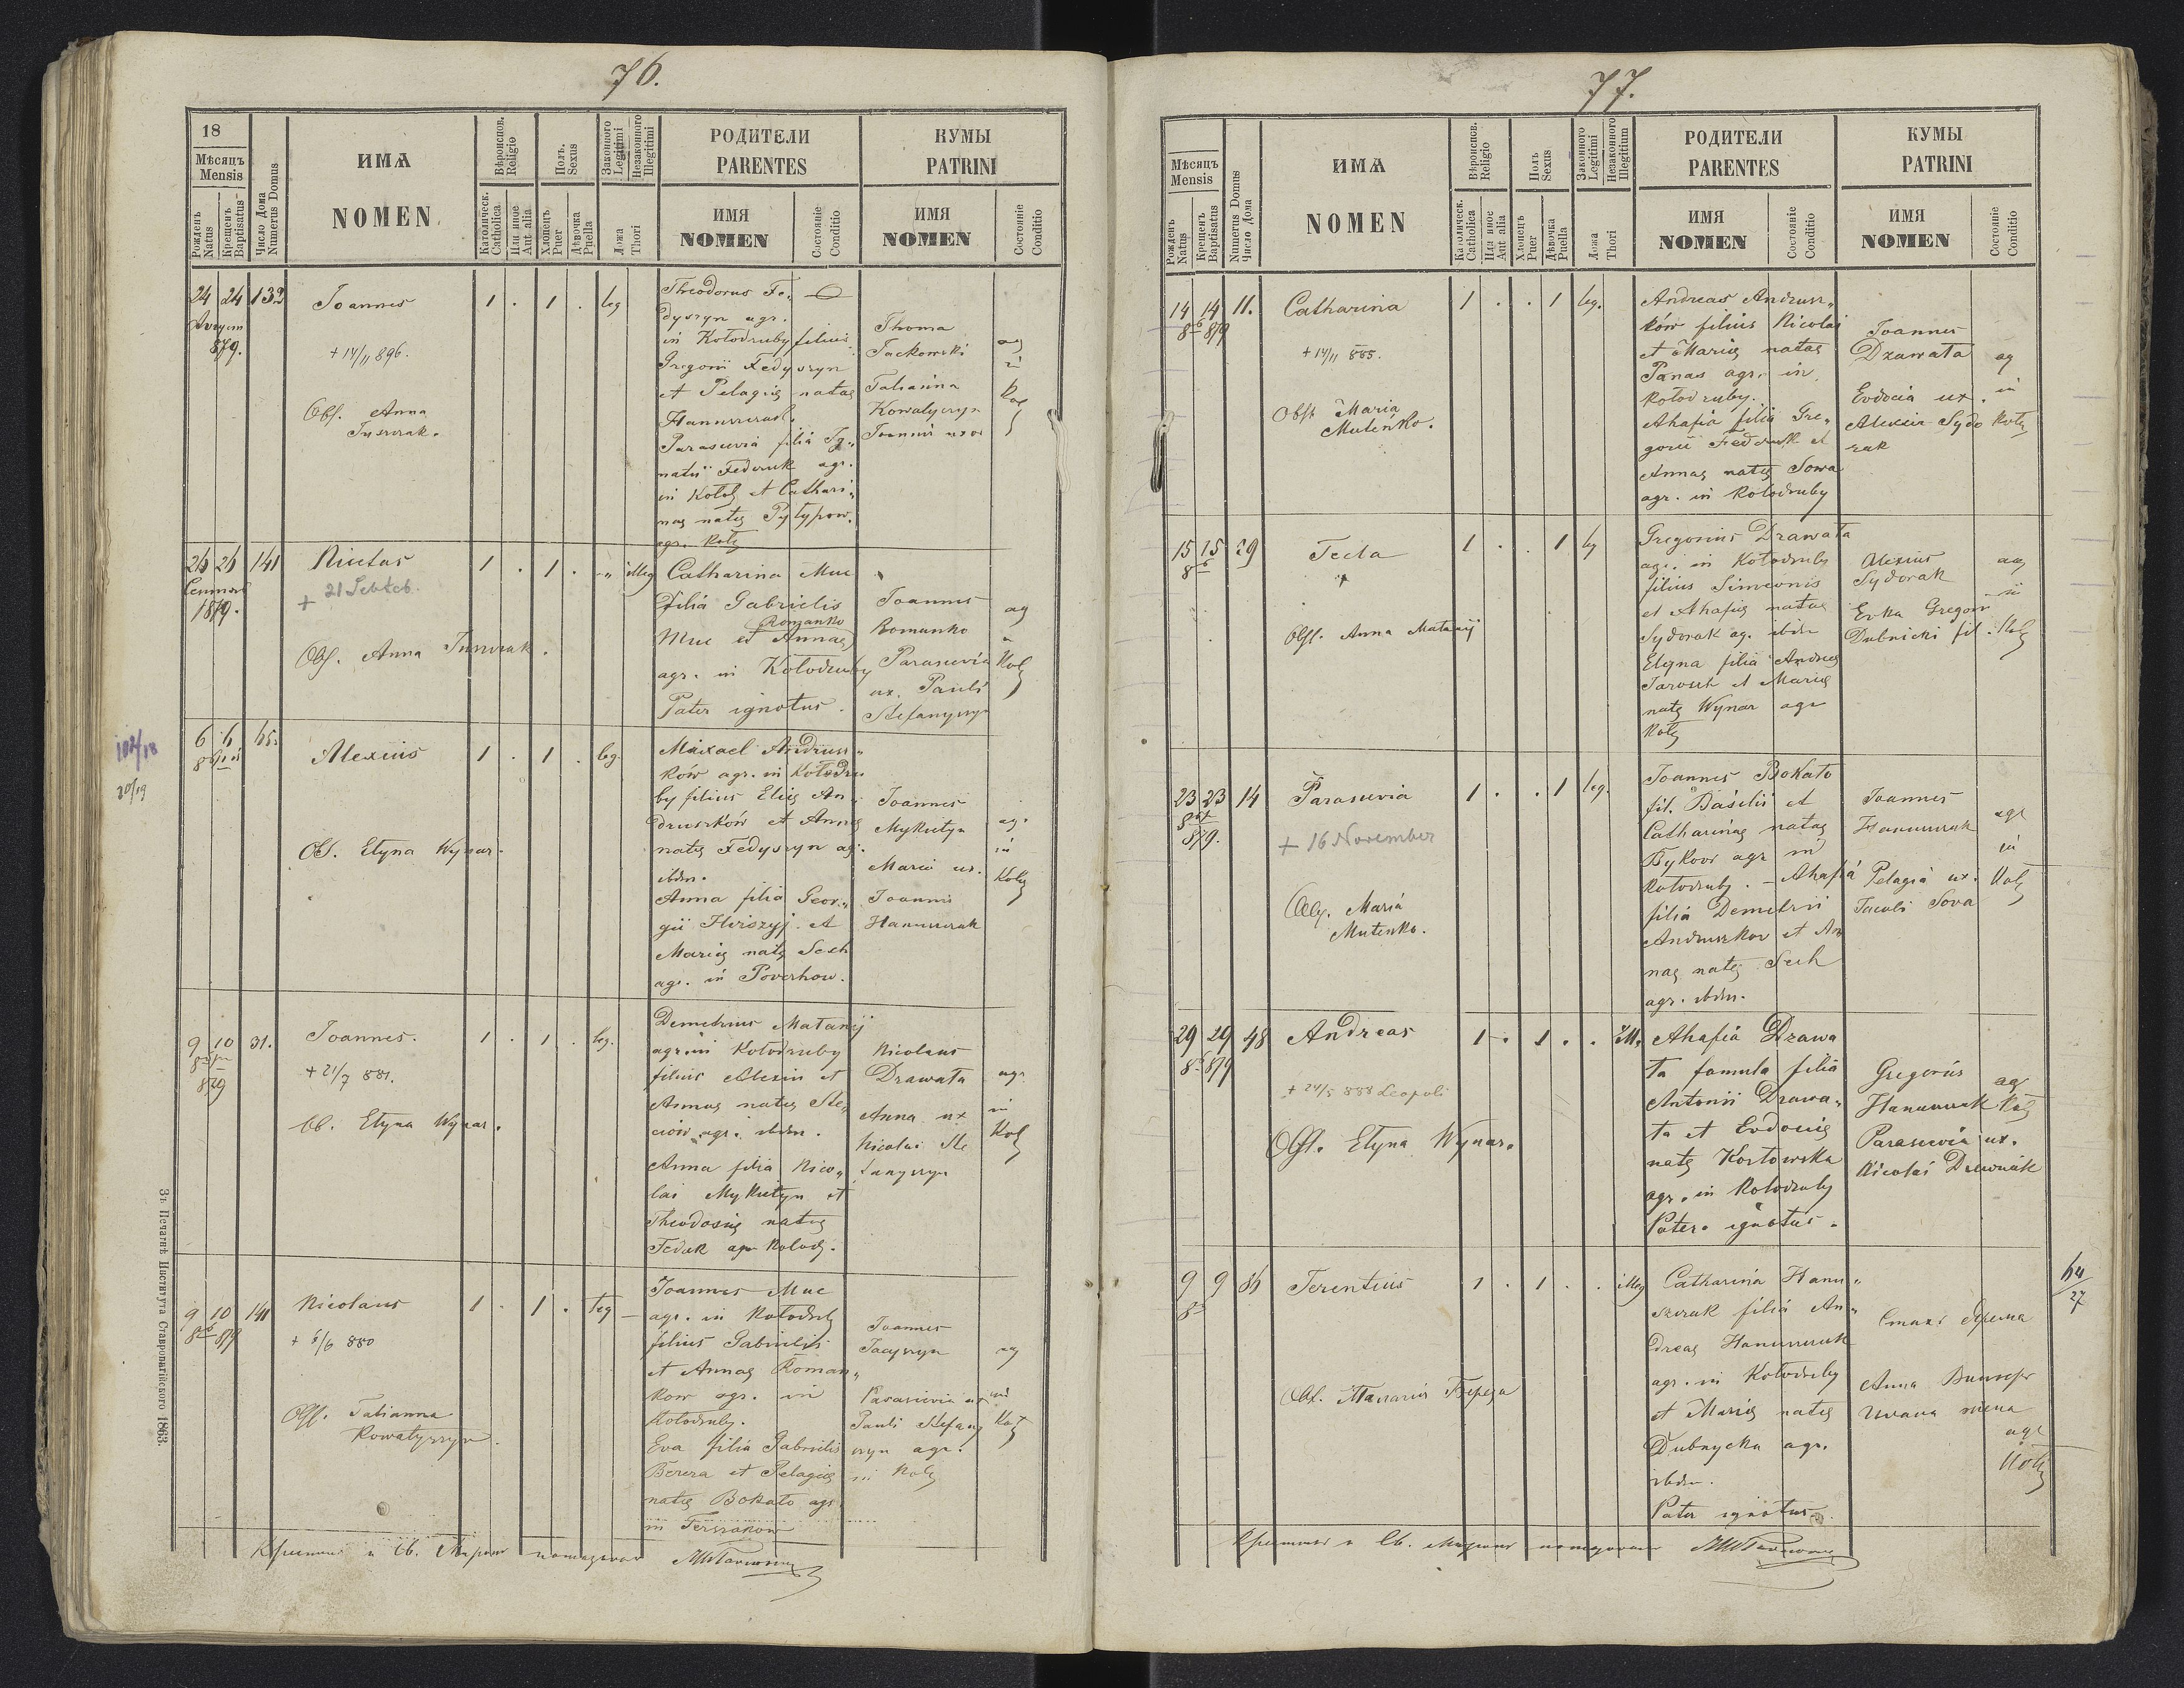 76.
18
Мѣсяцъ
Mensis
Рожденъ
Natus
Крещенъ
Baptisatus
Число Дома
Numerus Domus
ИМѦ
NOMEN
Вѣроиспов.
Religio
Католическ.
Catholica
Или иное
Aut alia
Полъ.
Sexus
Хлопецъ
Puer
Дѣвочка
Puella
Законного
Legitimi
Незаконного
Illegitimi
Ложа
Thori
РОДИТЕЛИ
PARENTES
ИМЯ
NOMEN
Состояніе
Conditio
КУМЫ
PATRINI
ИМЯ
NOMEN
Состояніе
Conditio
24 24 132
879.
Joannes
+ 14/11 896.
Obs. Anna
1 . 1 . leg
Theodorus Fe„
dyszyn agr.
in Kołodruby filius
Gregorii Fedyszyn
et Pelagię natae
Hanuszczak
Parascevia filia Ig„
natii Federuk agr.
in Kołod et Cathari„
nae natę Pyłypow.
agr. Kołę
Thoma
Jackowski
Tatianna
Kowałyszyn
Joannis uxor
ag
in
Koł
26 26 141
1879.
Nicetas
+ 21 Sebteb.
Obs. Anna
1 . 1 . „ illeg
Catharina Muc
filia Gabrielis
Romanko
Muc et Annae
agr. in Kołodruby
Pater ignotus.
Joannes
Romanko
Parascevia
ux. Pauli
Stefanyszyn
ag
in
Koł
102/18
20/19
6 6 65
Alexius
Ob. Elyna Wynar.
1 . 1 . leg.
Michael Andrusz„
ków agr. in Kołodru
by filius Elię An„
druszków et Annę
natę Fedyszyn ag.
ibdm.
Anna filia Geor„
gii Hirszyj et
Marię natę Sech
agr. in Powerhow.
Joannes
Mykietyn
Maria ux.
Joannis
Hanuszczak
agr.
in
Koł
9 10 31.
879
Joannes.
+ 21/7 881.
Ob. Elyna Wynar.
1 . 1 . leg.
Demetrius Matanij
agr. in Kołodruby
filius Alexii et
Annae natę Ste„
ciów agr. ibdm.
Anna filia Nico„
lai Mykietyn et
Theodosię natę
Feduk agr Kołod.
Nicolaus
Drawata
Anna ux
Nicolai Ste
fanyszyn
agr
in
Koł
9 10 141
879
Nicolaus
+ 6/6 880
Obst. Tatianna
Kowałyszyn.
1 . 1 . leg —
Joannes Muc
agr. in Kołodrub
filius Gabrielis
et Annae Roman„
kow agr. in
Kołodruby.
Eva filia Gabrielis
Bereza et Pelagię
natę Bokało agr
in Terszakow
Joannes
Jacyszyn
Parascevia ux
Pauli Stefany
szyn agr.
in Koł
ag
in
Koł
Зъ Печатнѣ Института Ставропигійского 1863.
77.
Мѣсяцъ
Mensis
Рожденъ
Natus
Крещенъ
Baptisatus
Numerus Domus
Число Дома
ИМѦ
NOMEN
Вѣроиспов.
Religio
Католическ.
Catholica
Или иное
Aut alia
Полъ
Sexus
Хлопецъ
Puer
Дѣвочка
Puella
Законного
Legitimi
Незаконного
Illegitimum
Ложа
Thori
РОДИТЕЛИ
PARENTES
ИМЯ
NOMEN
Состояніе
Conditio
КУМЫ
PATRINI
ИМЯ
NOMEN
Состояніе
Conditio
14 14 11.
879
Catharina
+ 14/11 885.
Obst Maria
Mutenko.
1 . . 1 leg.
Andreas Andrusz„
ków filius Nicolai
et Marię natae
Panas agr. in
Kołodruby.
Ahafia filia Gre„
gorii Federuk et
Annae natę Sowa
agr. in Kołodruby
Joannes
Drawata
Evdocia ux.
Alexii Sydo
rak
ag
in
Koł
15 15 29
Tecla
+
Obst. Anna Matanij
1 . . 1 leg
Gregorius Drawata
agr. in Kołodruby
filius Simeonis
et Ahafię natae
Sydorak ag. ibdm
Elyna filia Andreę
Jarosch et Marię
natę Wynar agr
Koł
Alexius
Sydorak
Evka Gregor
Dubnicki fil.
ag
in
Koł
23 23 14
879.
Parascevia
+ 16 November
Obst. Maria
Mutenko.
1 . . 1 leg.
Joannes Bokało
fil. Basilii et
Catharinae natae
Bykow agr in
Kołodruby. – Ahafia
filia Demetrii
Andruszkow et An
nae natę Sech
agr. ibdm.
Joannes
Hanuszczak
Pelagia ux.
Jacobi Sowa
agr
in
Koł
29 29 48
879
Andreas
+ 24/5 888 Leopoli
Obst. Elyna Wynar.
1 . 1 . . ill.
Ahafia Drawa
ta famula filia
Antonii Drawa„
ta et Evdocię
natę Kozłowska
agr. in Kołodruby
Pater ignotus.
Gregorius
Hanuszczak
Parascevia ux.
Nicolai Drewniak
ag
Koł
9 9 86
Terentius
1 . 1 . . illeg
Catharina Hanu„
szczak filia An„
dreae Hanuszczak
agr. in Kołodruby
et Marię natę
Dubnycka agr.
ibdm.
Pater ignotus
Анна
Ивана жена
agr
Koł
64/27